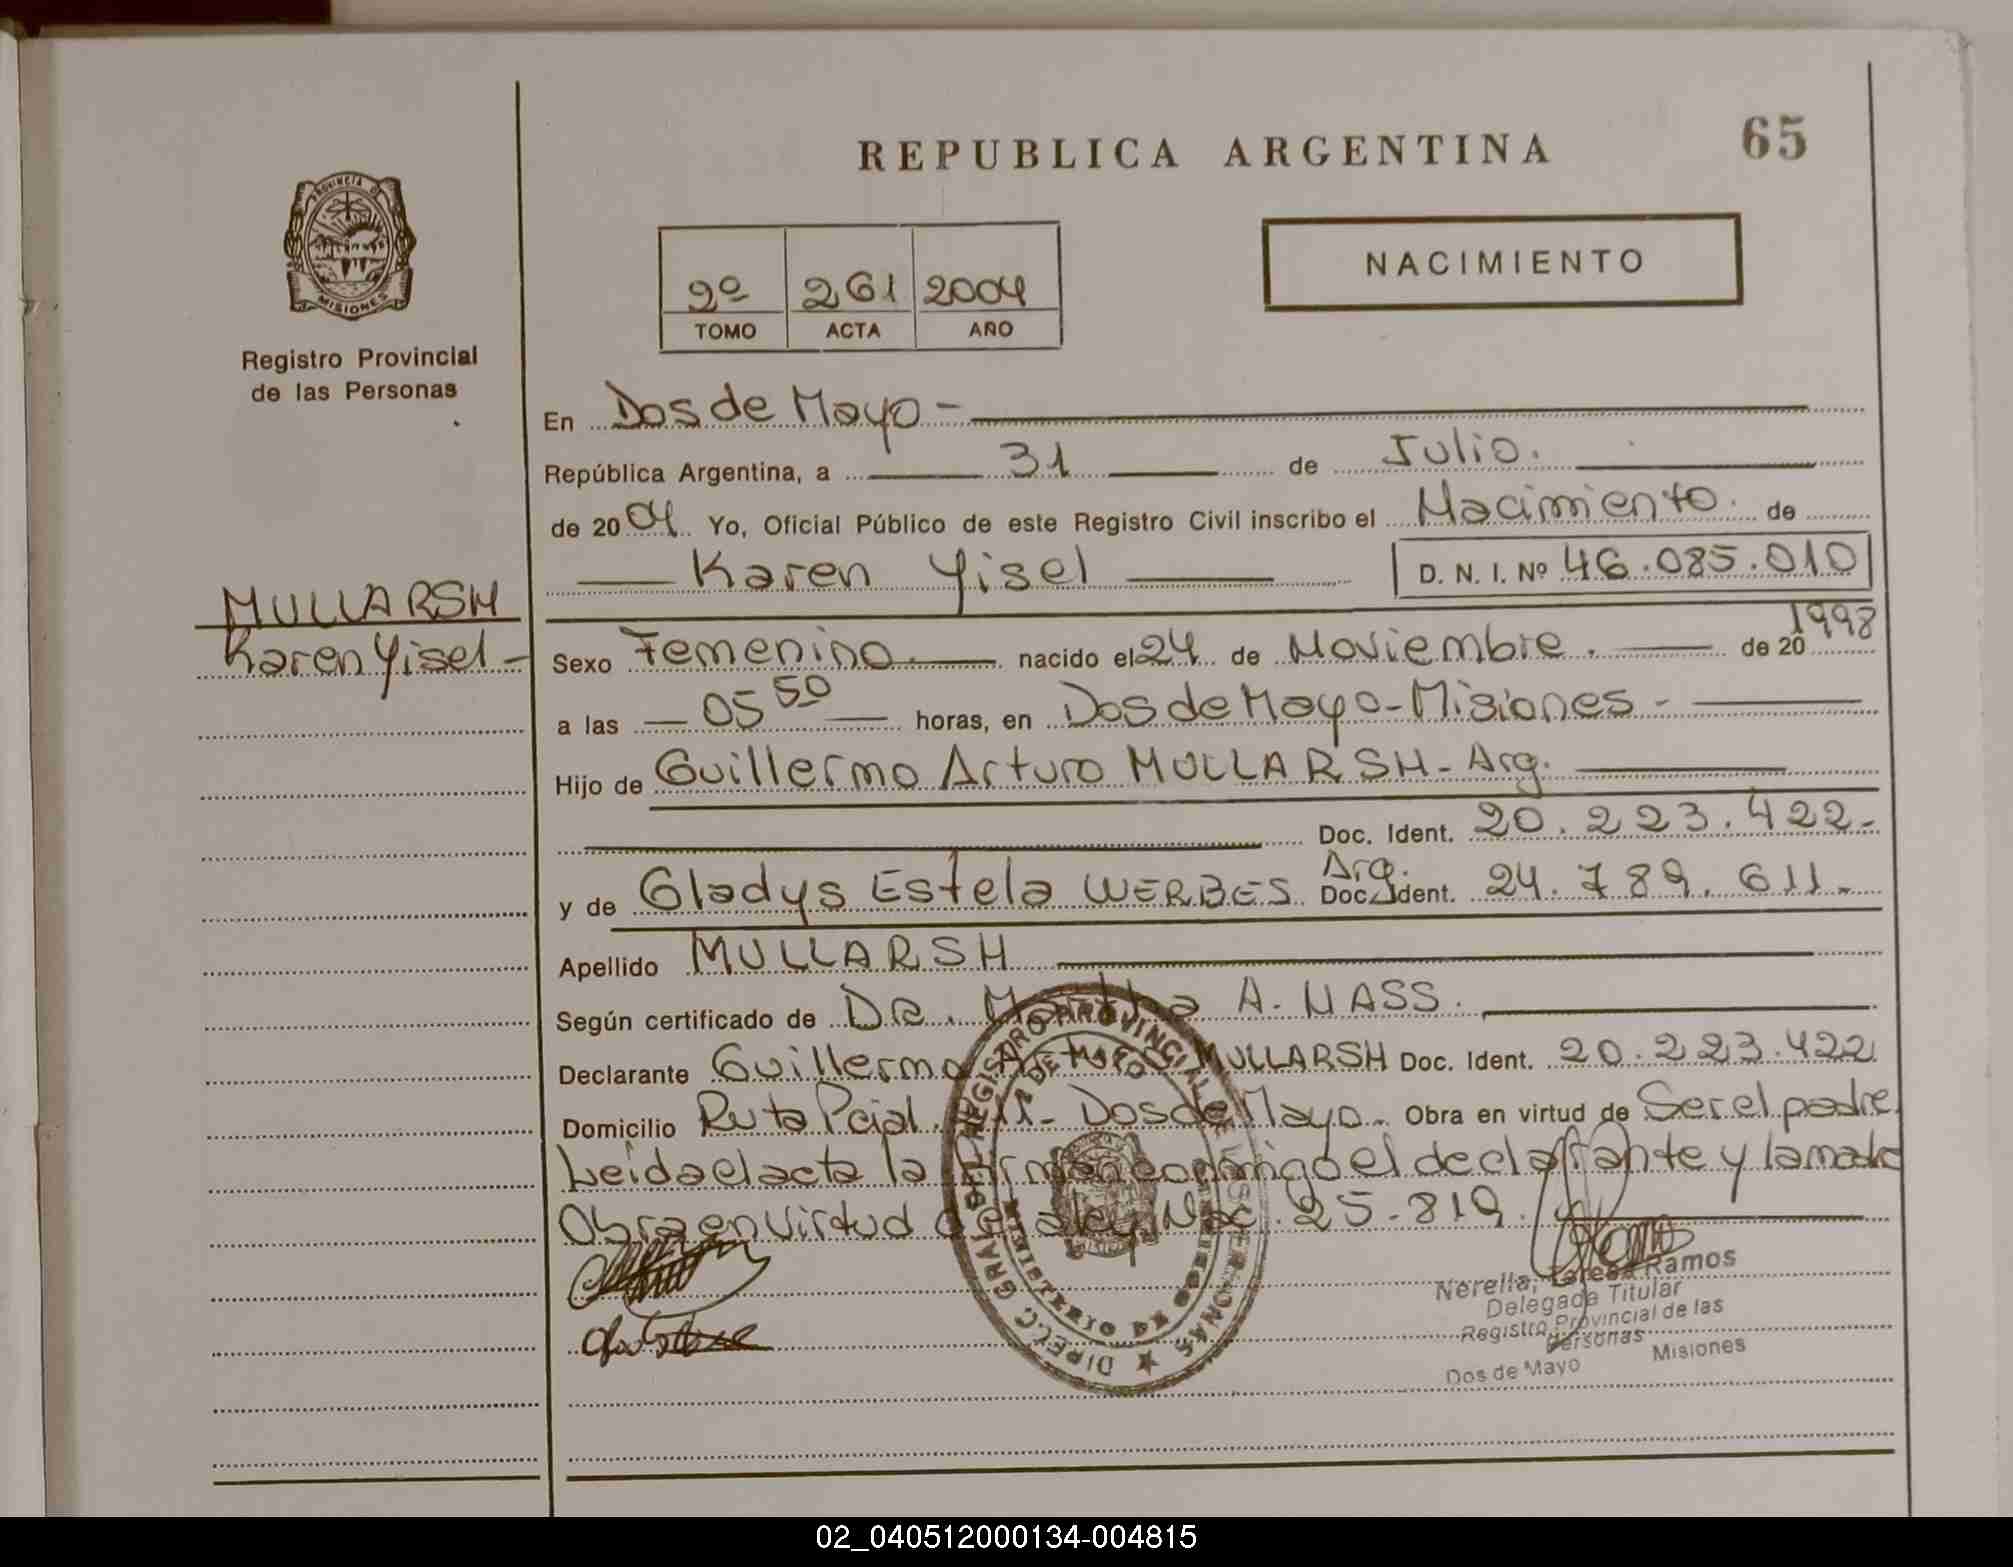 REPUBLICA ARGENTINA
65
PROVINCIA DE
MISIONES
Registro Provincial
de las Personas
2º 261 2004
TOMO ACTA AÑO
NACIMIENTO
En Dos de Mayo -
República Argentina, a 31 de Julio.
de 2004 Yo, Oficial Público de este Registro Civil inscribo el Nacimiento. de
Karen Yisel D. N. I. Nº 46.085.010
MULLARSH
Karen Yisel -
Sexo Femenino. nacido el 24 de Noviembre. de 20 1998
a las 05 50 horas, en Dos de Mayo - Misiones -
Hijo de Guillermo Arturo MULLARSH - Arg.
Doc. Ident. 20.223.422-
y de Gladys Estela WERBES Arg. Doc. Ident. 24.789.611-
Apellido MULLARSH
Según certificado de Dra. Martha A. NASS.
Declarante Guillermo Arturo MULLARSH Doc. Ident. 20.223.422
Domicilio Ruta Pcial. - Dos de Mayo - Obra en virtud de Ser el padre.
Leida el acta la firman conmigo el declarante y la madre
Obra en virtud de la ley Nac. 25.819.
Nerella, Teresa Ramos
Delegada Titular
Registro Provincial de las
Personas
Dos de Mayo Misiones
REGISTRO PROVINCIAL DE LAS PERSONAS
DIRECC GRAL
MINISTERIO DE GOBIERNO
2 DE MAYO
02_040512000134-004815